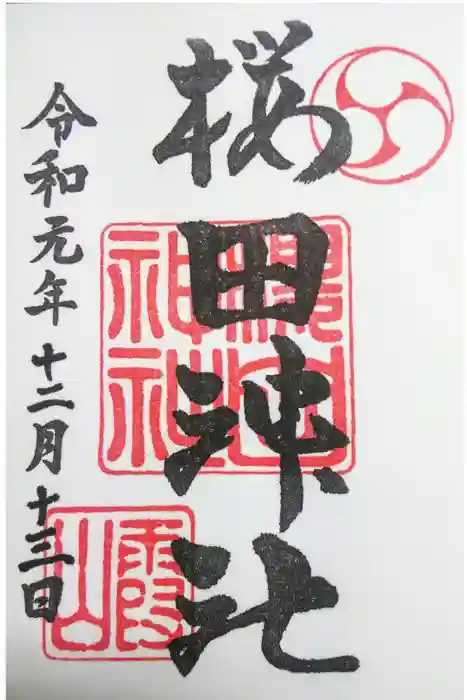 桜田神社
令和元年十二月十三日